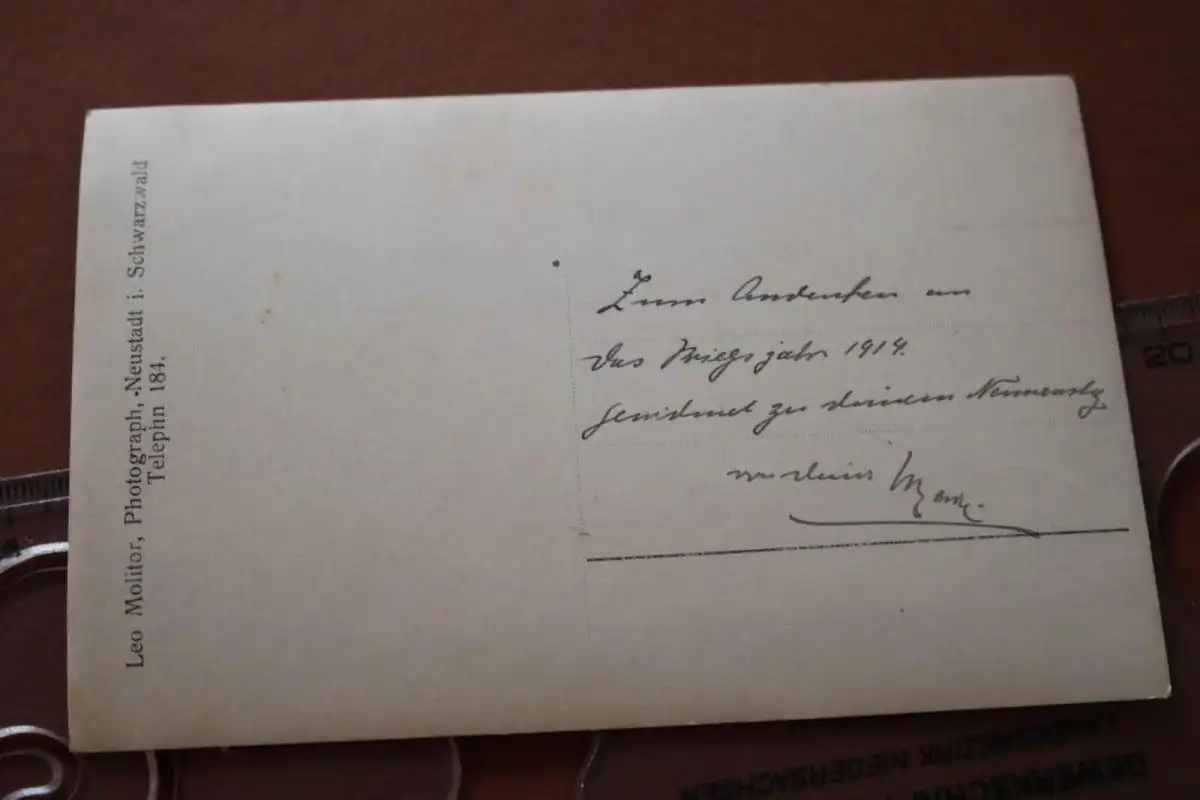 Leo Molitor, Photograph, -Neustadt i. Schwarzwald
Telephn 184.
Zum Andenken an
das Kriegsjahr 1914.
gewidmet zu deinem
von deiner
50
GEWERKSCHAFT
LANDESBEZIRK NIEDERSACHSEN